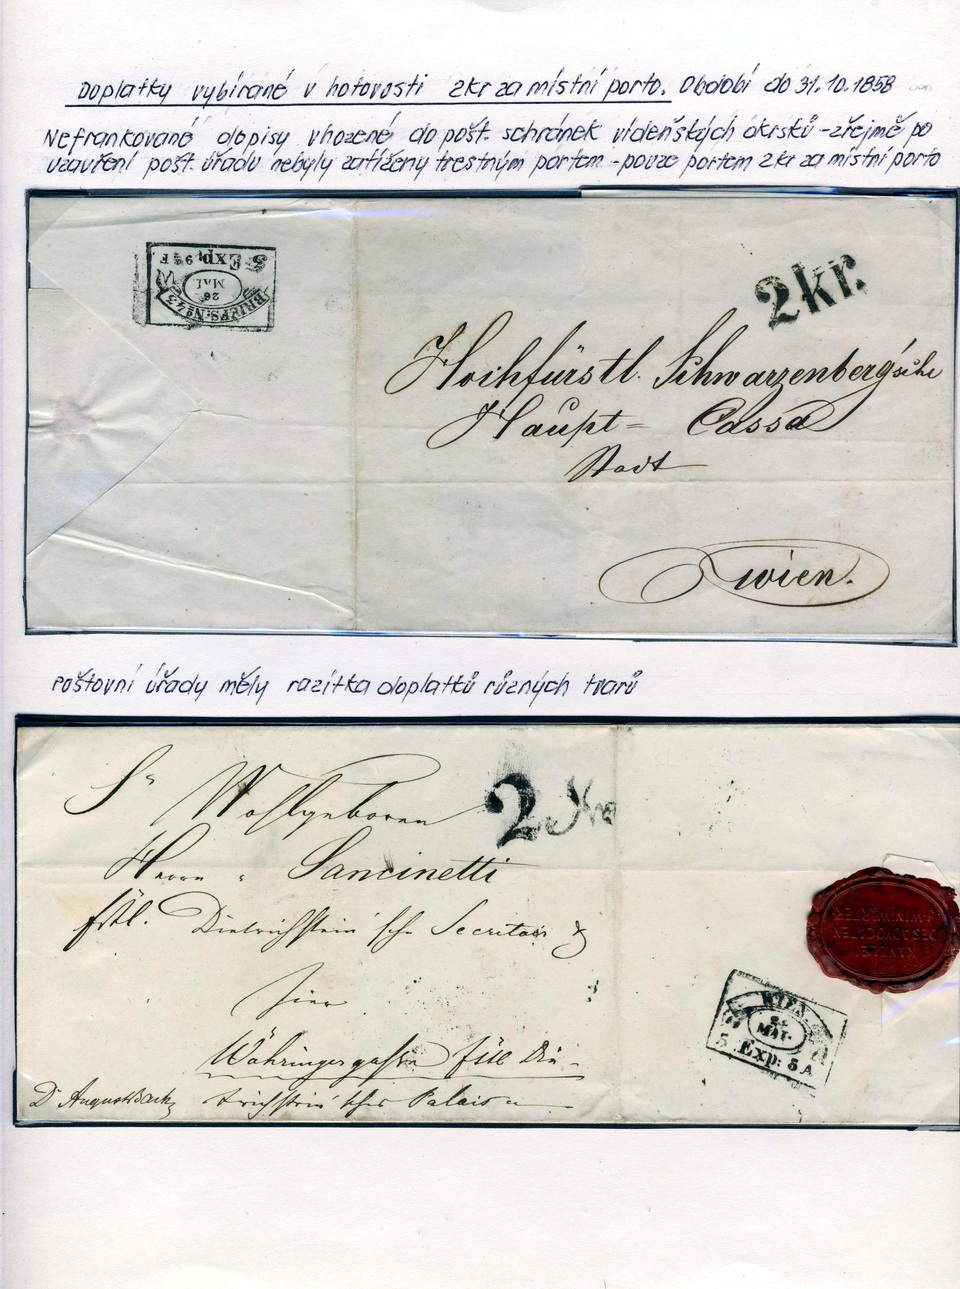 Doplatky vybírané v hotovosti 2kr za místní porto. Období do 31.10.1858
Nefrankované dopisy vhozené do pošt. schránek vídeňských okrsků - zřejmě po
uzavření pošt. úřadu nebyly zatíženy trestným portem - pouze portem 2kr za místní porto
BRIEFS: No 43
26
MAI.
5 Exp: 9 F
2kr.
Hochfürstl. Schwarzenberg'sche
Haupt= Cassa
Stadt
Wien.
Poštovní úřady měly razítka doplatků různých tvarů
2 Kr
Sr Wohlgeboren
Herrn Sancinetti
fstl. Dietrichstein'sche Secretair
hier
Währingergasse fstl Die-
trichstein'sches Palais
Dr August Bach
KANZLEI
DES ADVOCATEN
WIEN.
MAI.
5 Exp: 5 A